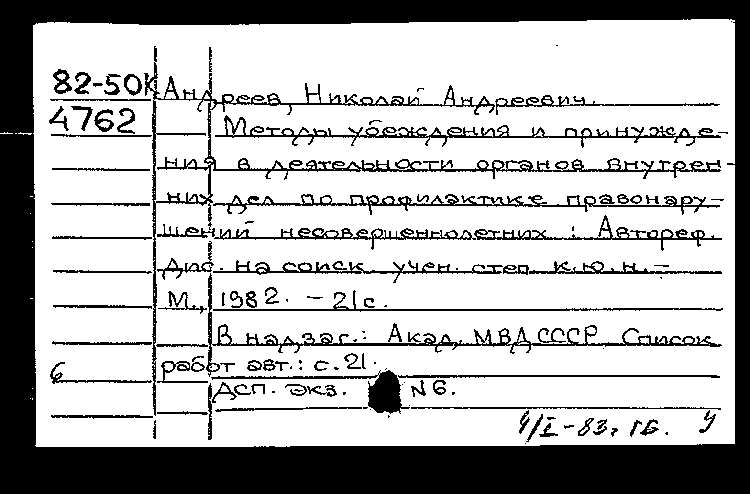 82-50К Андреев, Николай Андреевич.
4762 Методы убеждения и принужде-
ния в деятельности органов внутрен-
них дел по профилактике правонару-
шений несовершеннолетних : Автореф.
дис. на соиск. учен. степ. к.ю.н. -
М., 1982. - 21с.
В надзаг.: Акад. МВД СССР. Список
6 работ авт.: с. 21.
ДСП. экз. N6.
4/I-83г.